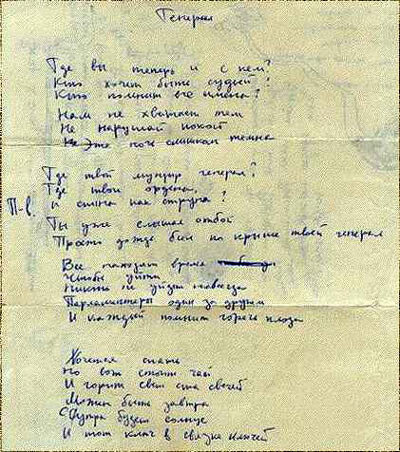 Генерал
Где вы теперь и с кем?
Кто хочет быть судьей?
Кто помнит все имена?
Нам не хватает тем
Не нарушай покой
Эта ночь слишком темна
Где твой мундир генерал?
Где твои ордена,
И спина как струна?
П-в.
Ты уже слышал отбой
Просто дождь бил по крыше твоей генерал
Все находят время
Чтобы уйти
Никто не уйдет навсегда
Парламентеры один за другим
И каждый помнит горечь плода
Хочется спать
Но вот стоит чай
И горит свет ста свечей
Может быть завтра
С утра будет солнце
И тот ключ в связке ключей